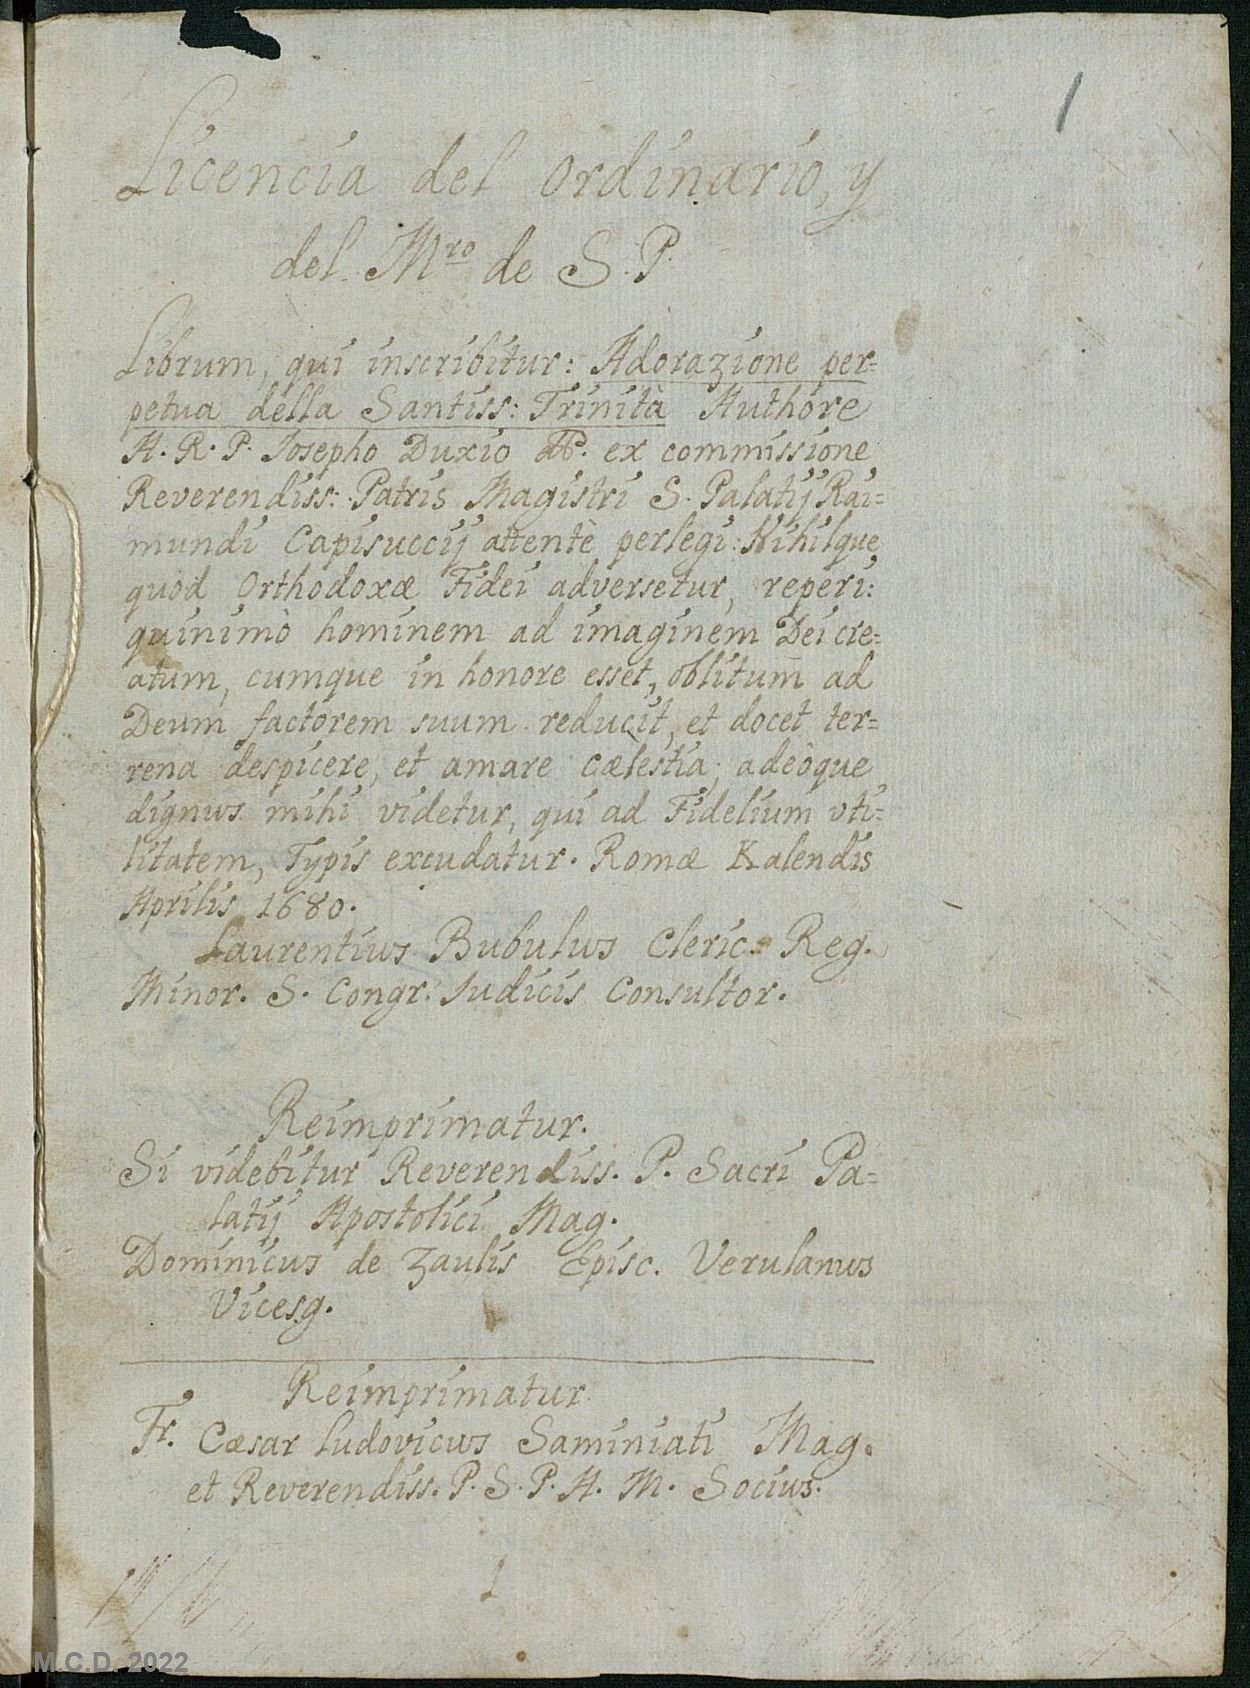 1
Licencia del ordinario, y
del Mro de S. P.
Librum, qui inscribitur: Adorazione per=
petua della Santiss: Trinità Authore
A. R. P. Iosepho Duxio ex commissione
Reverendiss: Patris Magistri S. Palatij Rai=
mundi Capisuccij attentè perlegi: Nihilque
quod Orthodoxæ Fidei adversetur, reperi:
quinimò hominem ad imaginem Dei cre=
atum, cumque in honore esset, oblitum ad
Deum factorem suum reducit, et docet ter=
rena despicere, et amare cælestia; adeòque
dignus mihi videtur, qui ad Fidelium vti=
litatem, Typis excudatur. Romæ Kalendis
Aprilis 1680.
Laurentius Bubulus Cleric. Reg.
Minor. S. Congr. Iudicis Consultor.
Reimprimatur.
Si videbitur Reverendiss. P. Sacri Pa=
latij Apostolici Mag.
Dominicus de Zaulis Episc. Verulanus
Vicesg.
Reimprimatur
Fr. Cæsar Ludovicus Saminiati Mag.
et Reverendiss. P. S. P. A. M. Socius.
1
M.C.D. 2022